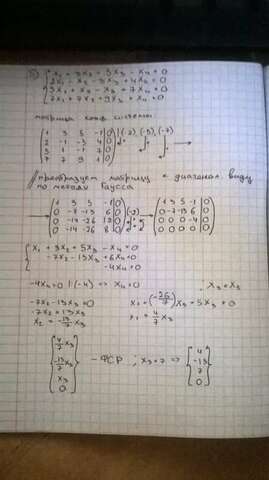 x₁ + 3x₂ + 5x₃ - x₄ = 0
2x₁ - x₂ - 3x₃ + 4x₄ = 0
5x₁ + x₂ - x₃ + 7x₄ = 0
7x₁ + 7x₂ + 9x₃ + x₄ = 0
матрица коэф. системы
1 3 5 -1 | 0 | · (-2), (-5), (-7)
2 -1 -3 4 | 0
5 1 -1 7 | 0
7 7 9 1 | 0
преобразуем матрицу к диагонал виду
по методу Гаусса
1 3 5 -1 | 0 → 1 3 5 -1 | 0
0 -7 -13 6 | 0 (-2) 0 -7 -13 6 | 0
0 -14 -26 12 | 0 0 0 0 0 | 0
0 -14 -26 8 | 0 0 0 0 -4 | 0
x₁ + 3x₂ + 5x₃ - x₄ = 0
-7x₂ - 13x₃ + 6x₄ = 0
-4x₄ = 0
-4x₄ = 0 | : (-4) → x₄ = 0 ; x₃ = x₃
-7x₂ - 13x₃ = 0
-7x₂ = 13x₃
x₂ = -13/7 x₃
x₁ = 4/7 x₃
4/7 x₃
-13/7 x₃
x₃
0
- ФСР ; x₃ = 7 ⇒
4
-13
7
0